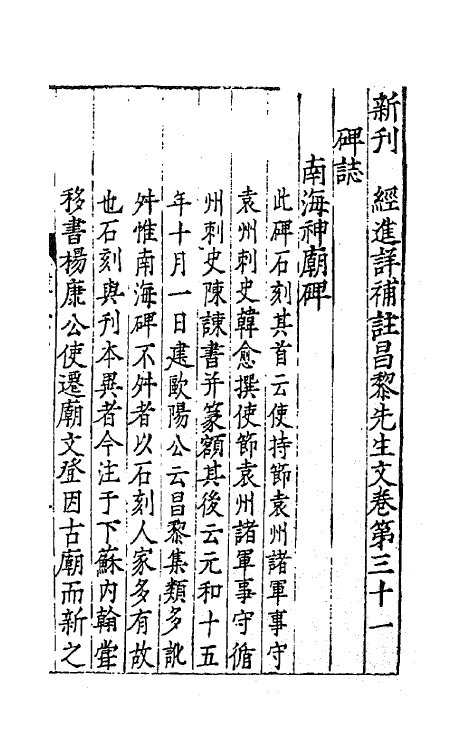 新刊 經進詳補註昌黎先生文卷第三十一
碑誌
南海神廟碑
此碑石刻其首云使持節袁州諸軍事守
袁州刺史韓愈撰使節袁州諸軍事守循
州刺史陳諫書并篆額其後云元和十五
年十月一日建歐陽公云昌黎集類多訛
舛惟南海碑不舛者以石刻人家多有故
也石刻與刊本異者今注于下蘇内翰甞
移書楊康公使遷廟文登因古廟而新之